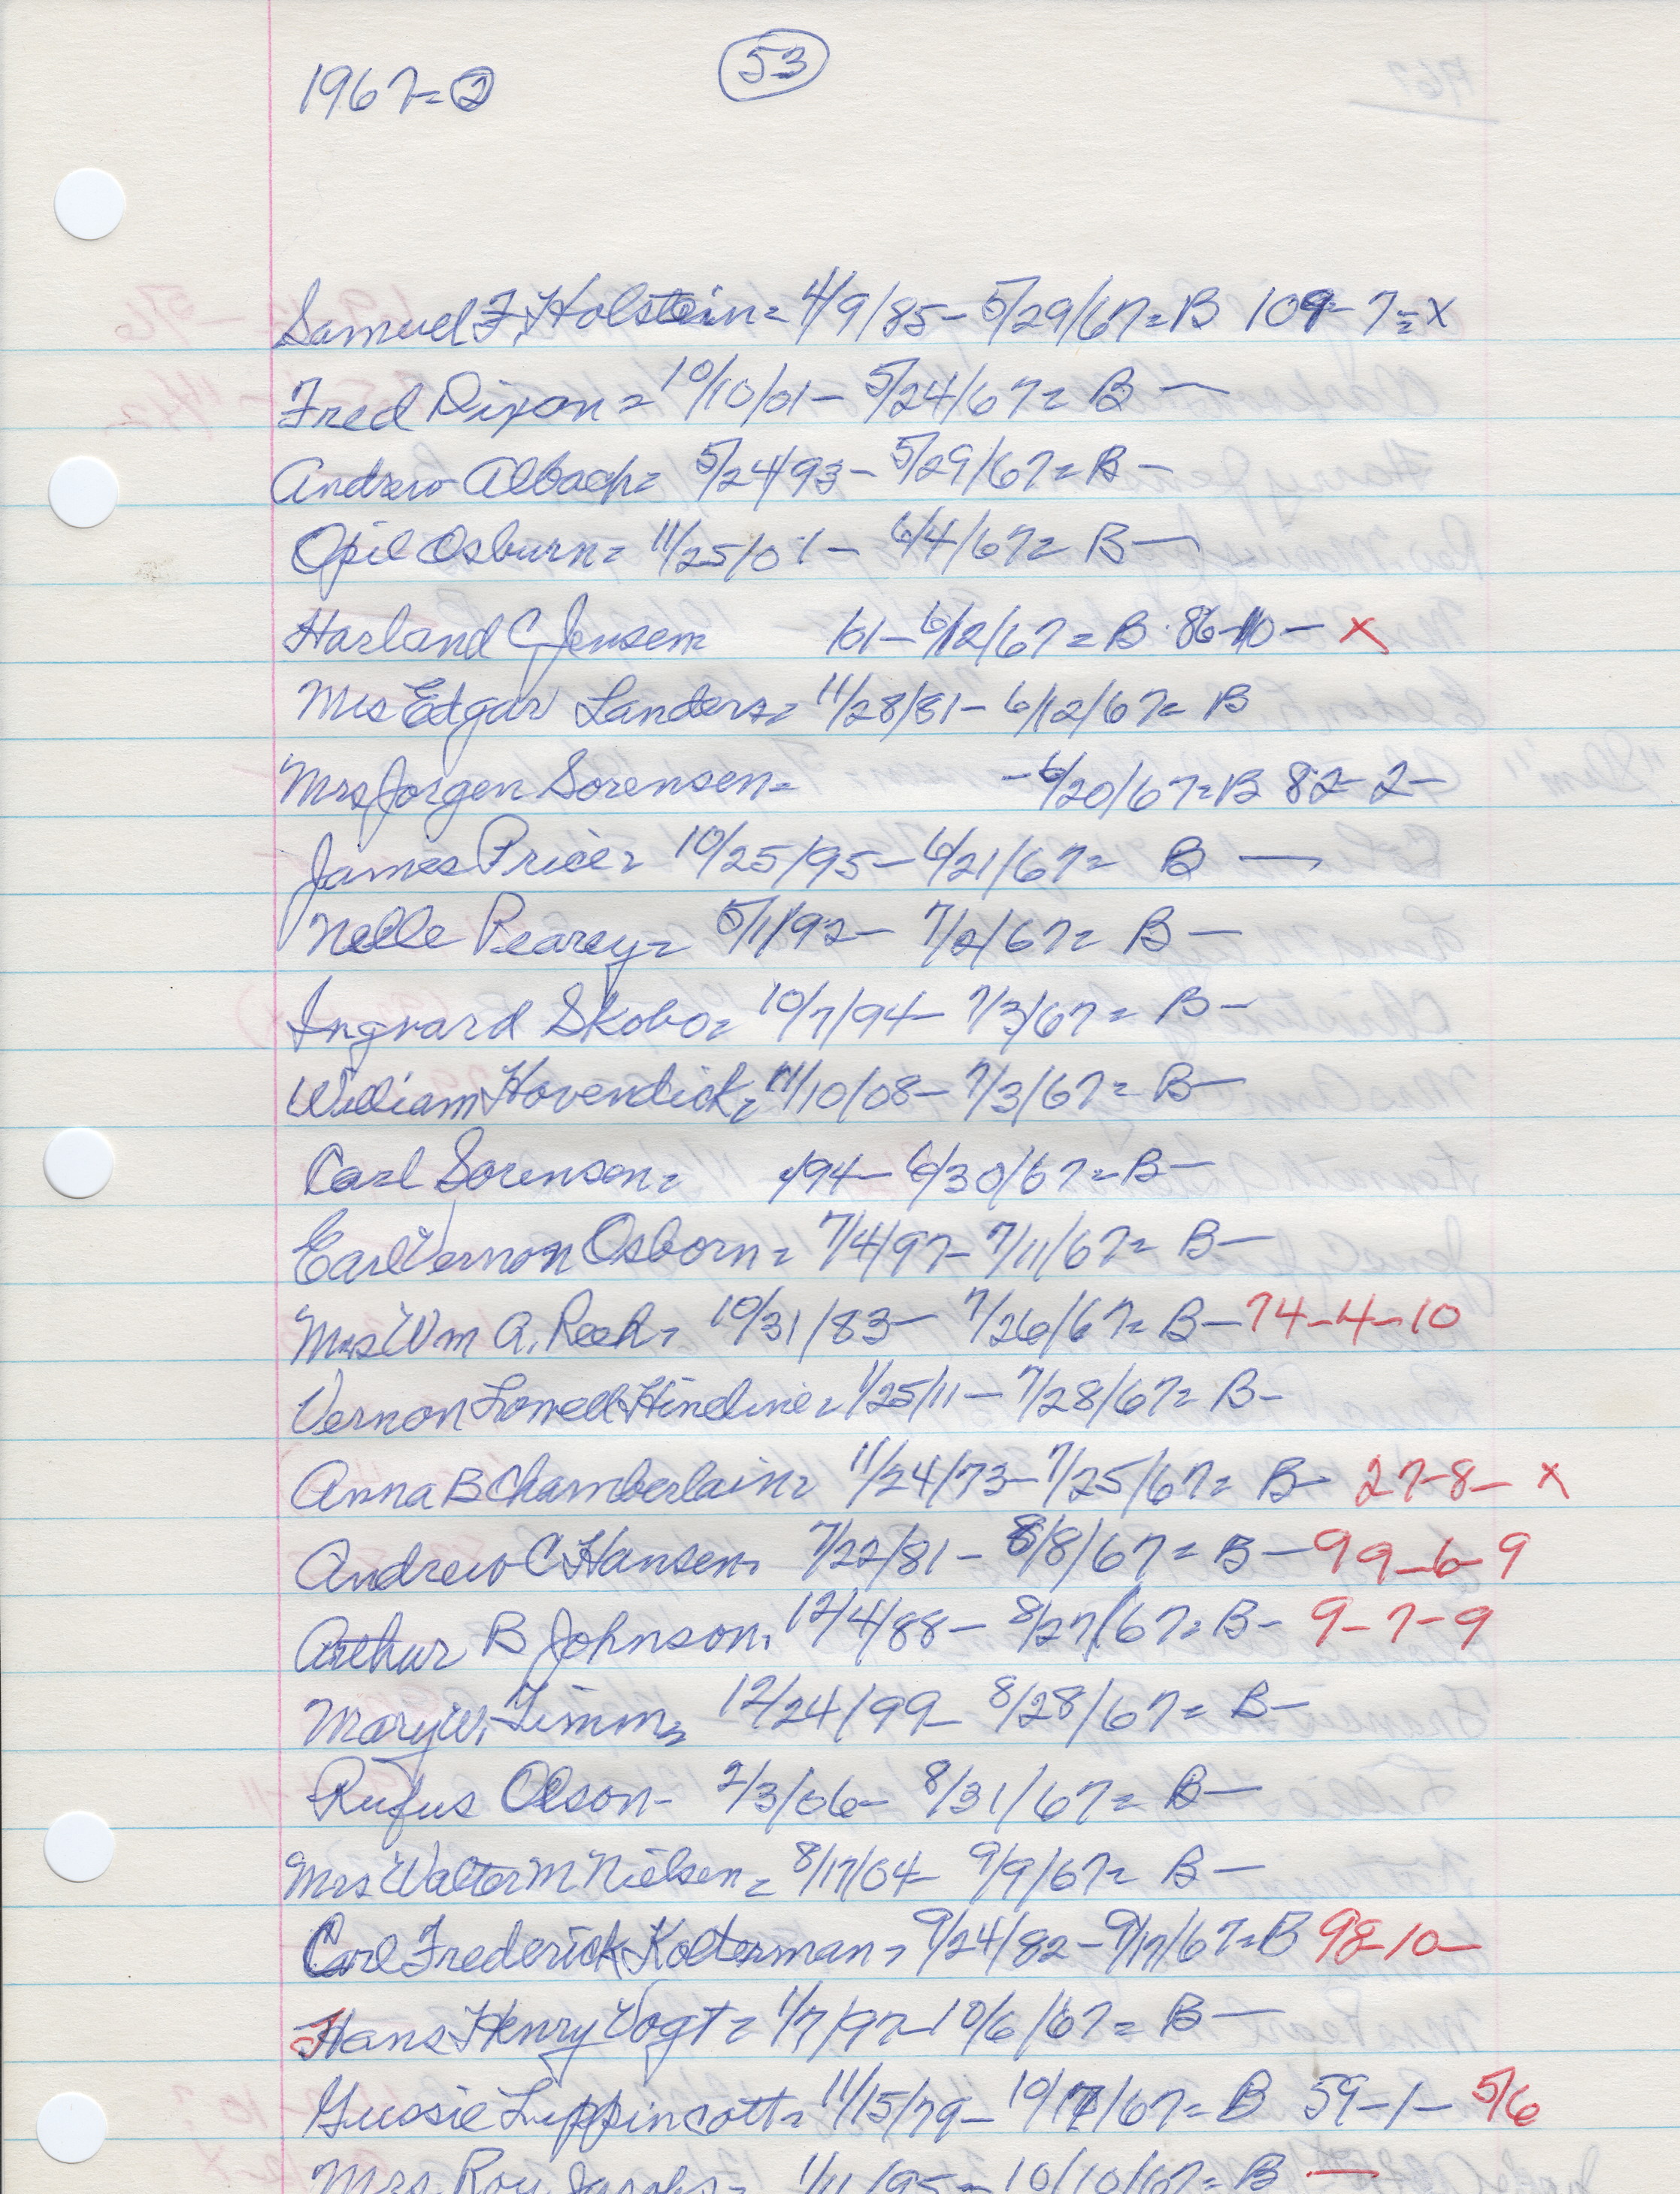 53
1967=②
Samuel F. Holstein= 4/9/85- 5/29/67=B 109-7=x
Fred Dixon= 10/10/01- 5/24/67= B-
Andrew Albach= 5/24/93- 5/29/67= B-
Opil Osburn= 11/25/01- 6/4/67= B-
Harland C Jensen= /01- 6/12/67= B 86-10- x
Mrs Edgar Landers= 11/28/81- 6/12/67= B
Mrs Jorgen Sorensen= -6/20/67=B 82-2-
James Price= 10/25/95- 6/21/67= B-
Nelle Pearey= 5/11/92- 7/2/67= B-
Ingvard Skobo= 10/7/94- 7/3/67= B-
William Hovendick= 11/10/08- 7/3/67= B-
Carl Sorenson= /94- 6/30/67=B-
Earl Vernon Osborn= 7/4/97- 7/11/67= B-
Mrs Wm A. Reeh= 10/31/83- 7/26/67= B-74-4-10
Vernon Lowell Hindine= 1/25/11- 7/28/67= B-
Anna B Chamberlain= 11/24/73- 7/25/67= B- 27-8- x
Andrew C Hansen= 7/22/81- 8/8/67= B-99-6-9
Arthur B Johnson= 12/4/88- 8/27/67= B- 9-7-9
Mary W. Timm= 12/24/99- 8/28/67= B-
Rufus Olson- 2/3/06- 8/31/67= B-
Mrs Walter M Nielsen= 8/17/04- 9/9/67= B-
Carl Frederick Kolterman= 9/24/82-9/17/67=B 98-10-
Hans Henry Vogt= 1/7/97-10/6/67= B-
Gussie Lippincott= 11/15/79- 10/7/67= B 59-1- 5/6
Mrs Roy Jacobs= 1/11/95- 10/10/67= B-